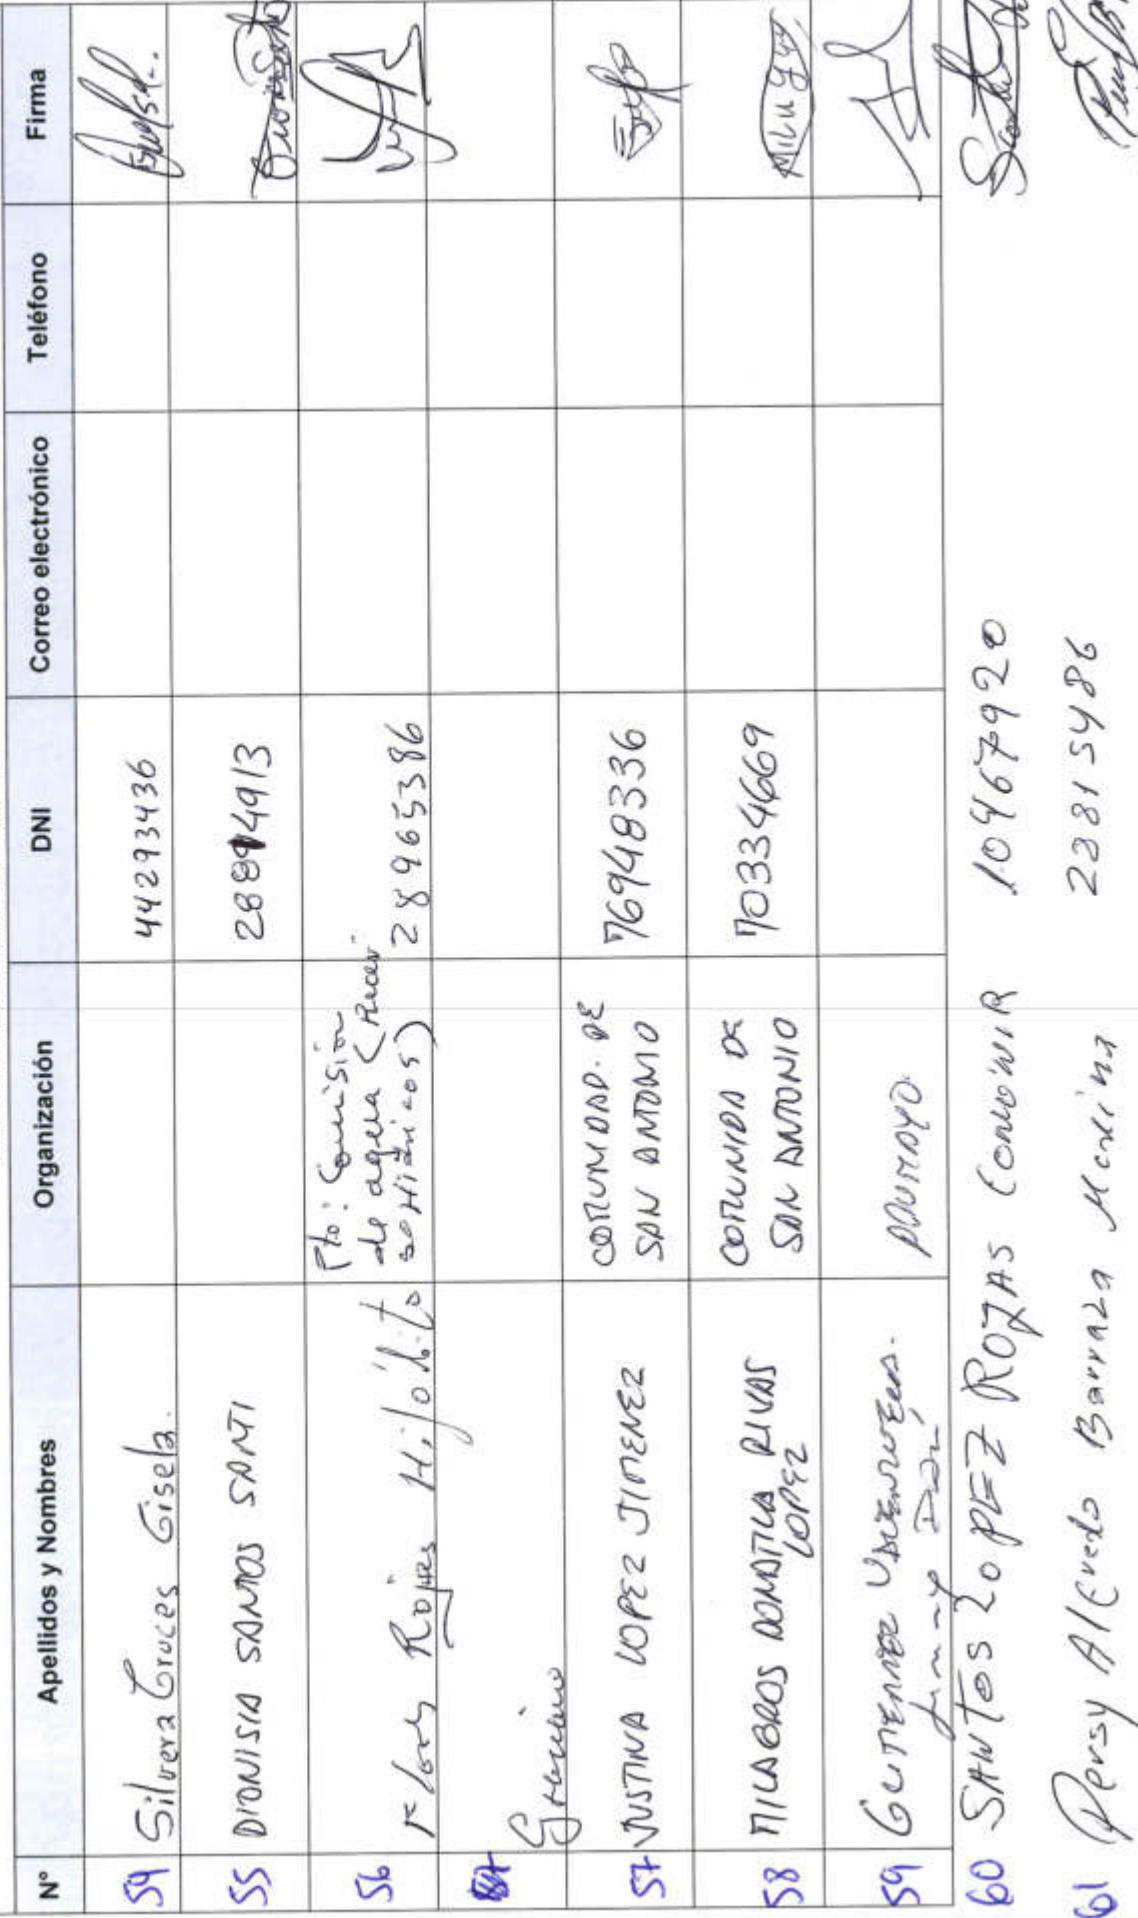 N° Apellidos y Nombres Organización DNI Correo electrónico Teléfono Firma
54 Silvera Cruces Gisela. 44293436
55 DIONISIA SANTOS SANTI 28894913
56 Flores Rojas Hipólito Pto: Comisión
de agua (Recur
sos Hídricos) 28965386
57 JUSTINA LOPEZ JIMENEZ COMUNIDAD. DE
SAN ANTONIO 76948336
58 MILAGROS DOMATILA RIVAS
LOPEZ COMUNIDA DE
SAN ANTONIO 70334669 MILUGYY
59 GUTIERREZ
60 SANTOS LOPEZ ROJAS 10967920
61 Persy Alfredo Barraza 22815486